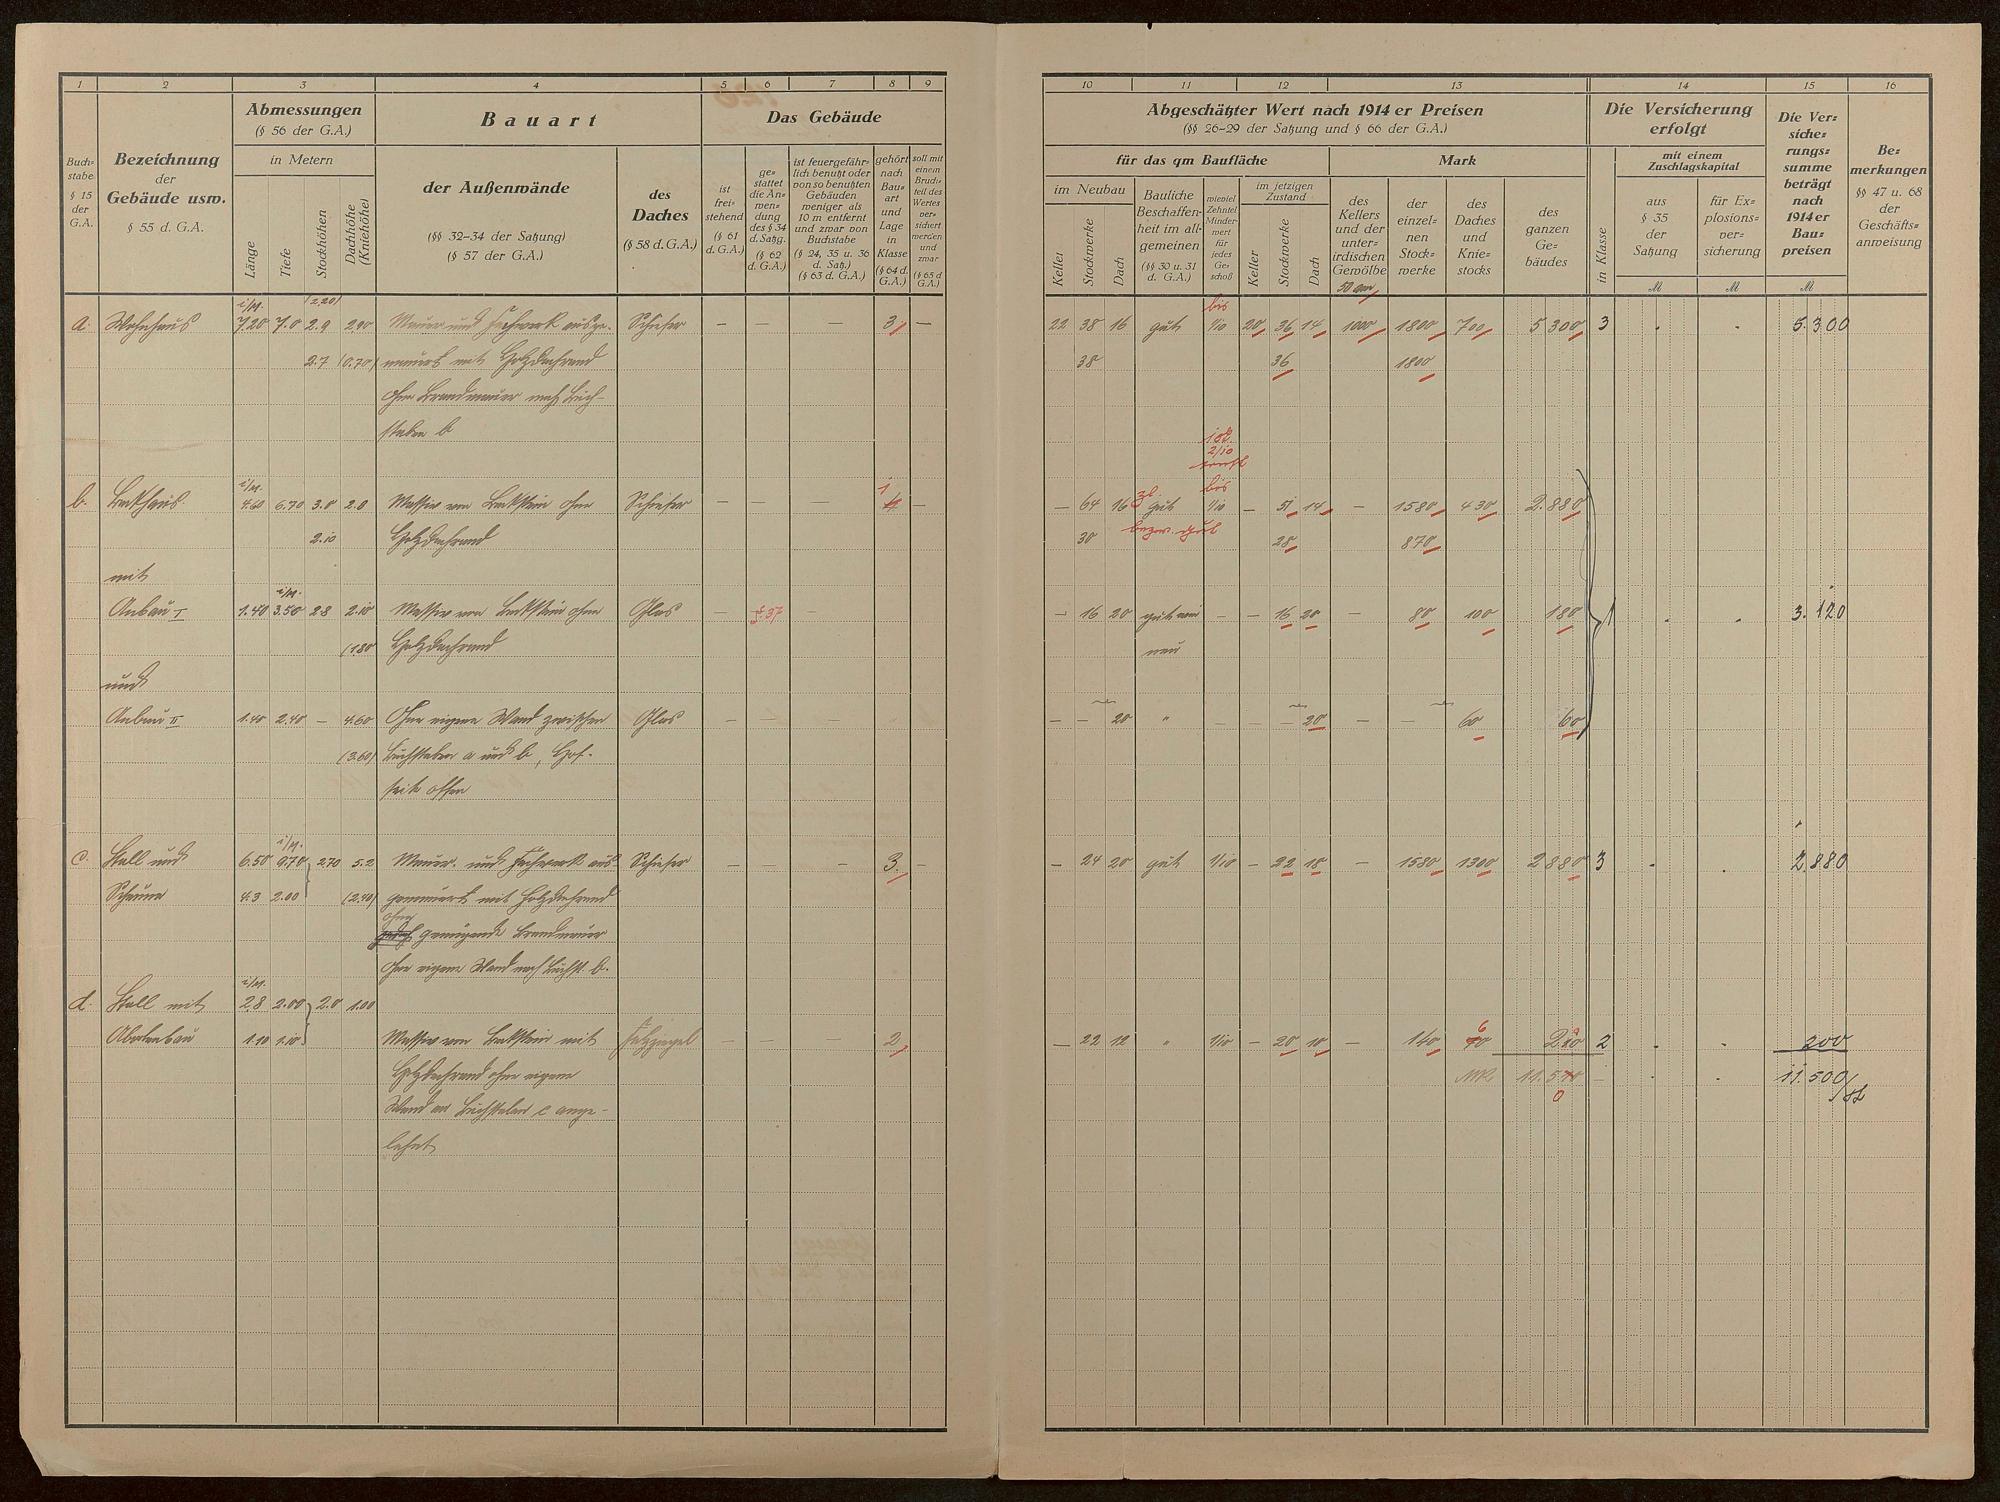 1 2 3 4 5 6 7 8 9
Buch-
stabe
§ 15
der
G.A.
Bezeichnung
der
Gebäude usw.
§ 55 d. G.A.
Abmessungen
(§ 56 der G.A.)
in Metern
Länge
Tiefe
Stockhöhen
Dachhöhe
(Kniehöhe)
Bauart
der Außenwände
(§§ 32–34 der Satzung)
(§ 57 der G.A.)
des
Daches
(§ 58 d.G.A.)
Das Gebäude
ist
frei-
stehend
(§ 61
d. G.A.)
ge-
stattet
die An-
wen-
dung
des § 34
d. Satzg.
(§ 62
d. G.A.)
ist feuergefähr-
lich benutzt oder
von so benutzten
Gebäuden
weniger als
10 m entfernt
und zwar von
Buchstabe
(§ 24, 35 u. 36
d. Satz.)
(§ 63 d. G.A.)
gehört
nach
Bau-
art
und
Lage
in
Klasse
(§ 64 d.
G.A.)
soll mit
einem
Bruch-
teil des
Wertes
ver-
sichert
werden
und
zwar
(§ 65 d.
G.A.)
i/M. (2.20)
a. Wohnhaus 7.20 7.0 2.9 2.90 Mauer und Fachwerk ausge- Schiefer — — — 3 —
2.7 (0.70) mauert mit Holzdachrand
ohne Brandmauer nach Buch-
staben b
i/M. 1
b. Backhaus 4.60 6.70 3.0 2.0 Massiv von Backstein ohne Schiefer — — 4 —
2.10 Holzdachrand
mit
i/M.
Anbau I 1.40 3.50 2.8 2.10 Massiv von Backstein ohne Glas — § 37 —
(1.80 Holzdachrand
und
Anbau II 1.40 2.40 — 4.60 Ohne eigene Wand zwischen Glas — — —
(3.60) Buchstaben a und b, Hof-
seite offen
i/M.
c. Stall und 6.50 9.70 2.70 5.2 Mauer- und Fachwerk aus- Schiefer — — — 3. —
Scheuer 4.3 2.00 (2.40) gemauert mit Holzdachrand
ohne
genügende Brandmauer
ohne eigene Wand nach Buchst. b.
i/M.
d. Stall mit 2.8 2.00 2.0 1.00
Abortanbau 1.10 1.10 Massiv von Backstein mit Falzziegel — — — 2
Holzdachrand ohne eigene
Wand an Buchstaben c ange-
lehnt
10 11 12 13 14 15 16
Abgeschätzter Wert nach 1914er Preisen
(§§ 26–29 der Satzung und § 66 der G.A.)
für das qm Baufläche
Mark
im Neubau
Keller
Stockwerke
Dach
Bauliche
Beschaffen-
heit im all-
gemeinen
(§§ 30 u. 31
d. G.A.)
wieviel
Zehntel
Minder-
wert
für
jedes
Ge-
schoß
im jetzigen
Zustand
Keller
Stockwerke
Dach
des
Kellers
und der
unter-
irdischen
Gewölbe
der
einzel-
nen
Stock-
werke
des
Daches
und
Knie-
stocks
des
ganzen
Ge-
bäudes
in Klasse
Die Versicherung
erfolgt
mit einem
Zuschlagskapital
aus
§ 35
der
Satzung
für Ex-
plosions-
ver-
sicherung
Die Ver-
siche-
rungs-
summe
beträgt
nach
1914er
Bau-
preisen
Be-
merkungen
§§ 47 u. 68
der
Geschäfts-
anweisung
M M M
bis 50 qm
22 38 16 gut 1/10 20 36 14 1000 1800 700 5 300 3 5.300
38 36 1800
2/10
bis
— 64 16 zl. gut 1/10 — 51 14 — 1580 430 2.880
30 bezw. gut 28 870
— 16 20 gut wie — — 16 20 — 80 100 180 1 3.120
neu
— — 20 " — — — 20 — — 60 60
— 24 20 gut 1/10 — 22 18 — 1580 1300 2880 3 2.880
6
— 22 12 " 1/10 — 20 10 — 140 70 2 200
MK 11.5 11.500
0